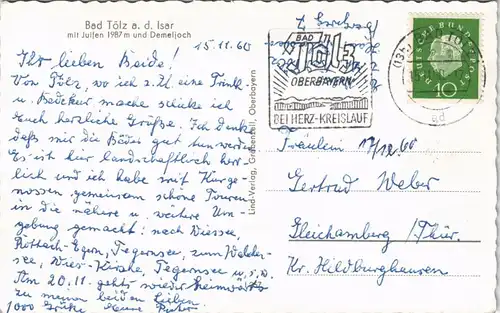 Bad Tölz a. d. Isar
mit Juifen 1987 m und Demeljoch
15.11.60
Ihr lieben Beide!
Von Tölz, wo ich z. Zt. eine Trink-
u. Badekur mache schicke ich
Euch herzliche Grüße. Ich denke
daß mir die Bäder gut tun werden.
Es ist hier landschaftlich herr-
lich und ich habe mit Kurge-
nossen gemeinsam schöne Touren
in die nähere u. weitere Um-
gebung gemacht: nach Wiessee,
Rottach-Egern, Tegernsee, zum Walchen-
see, Wies-Kirche, Tegernsee u.s.w.
Am 20.11. gehts wieder heimwärts
zu meinen beiden Lieben.
1000 Grüße Eure
Lind-Verlag, Oberbayern
BAD
Tölz
OBERBAYERN
BEI HERZ-KREISLAUF
DEUTSCHE BUNDESPOST
10
Fräulein 17/12.60
Gertrud Weber
Gleichamberg / Thür.
Kr. Hildburghausen